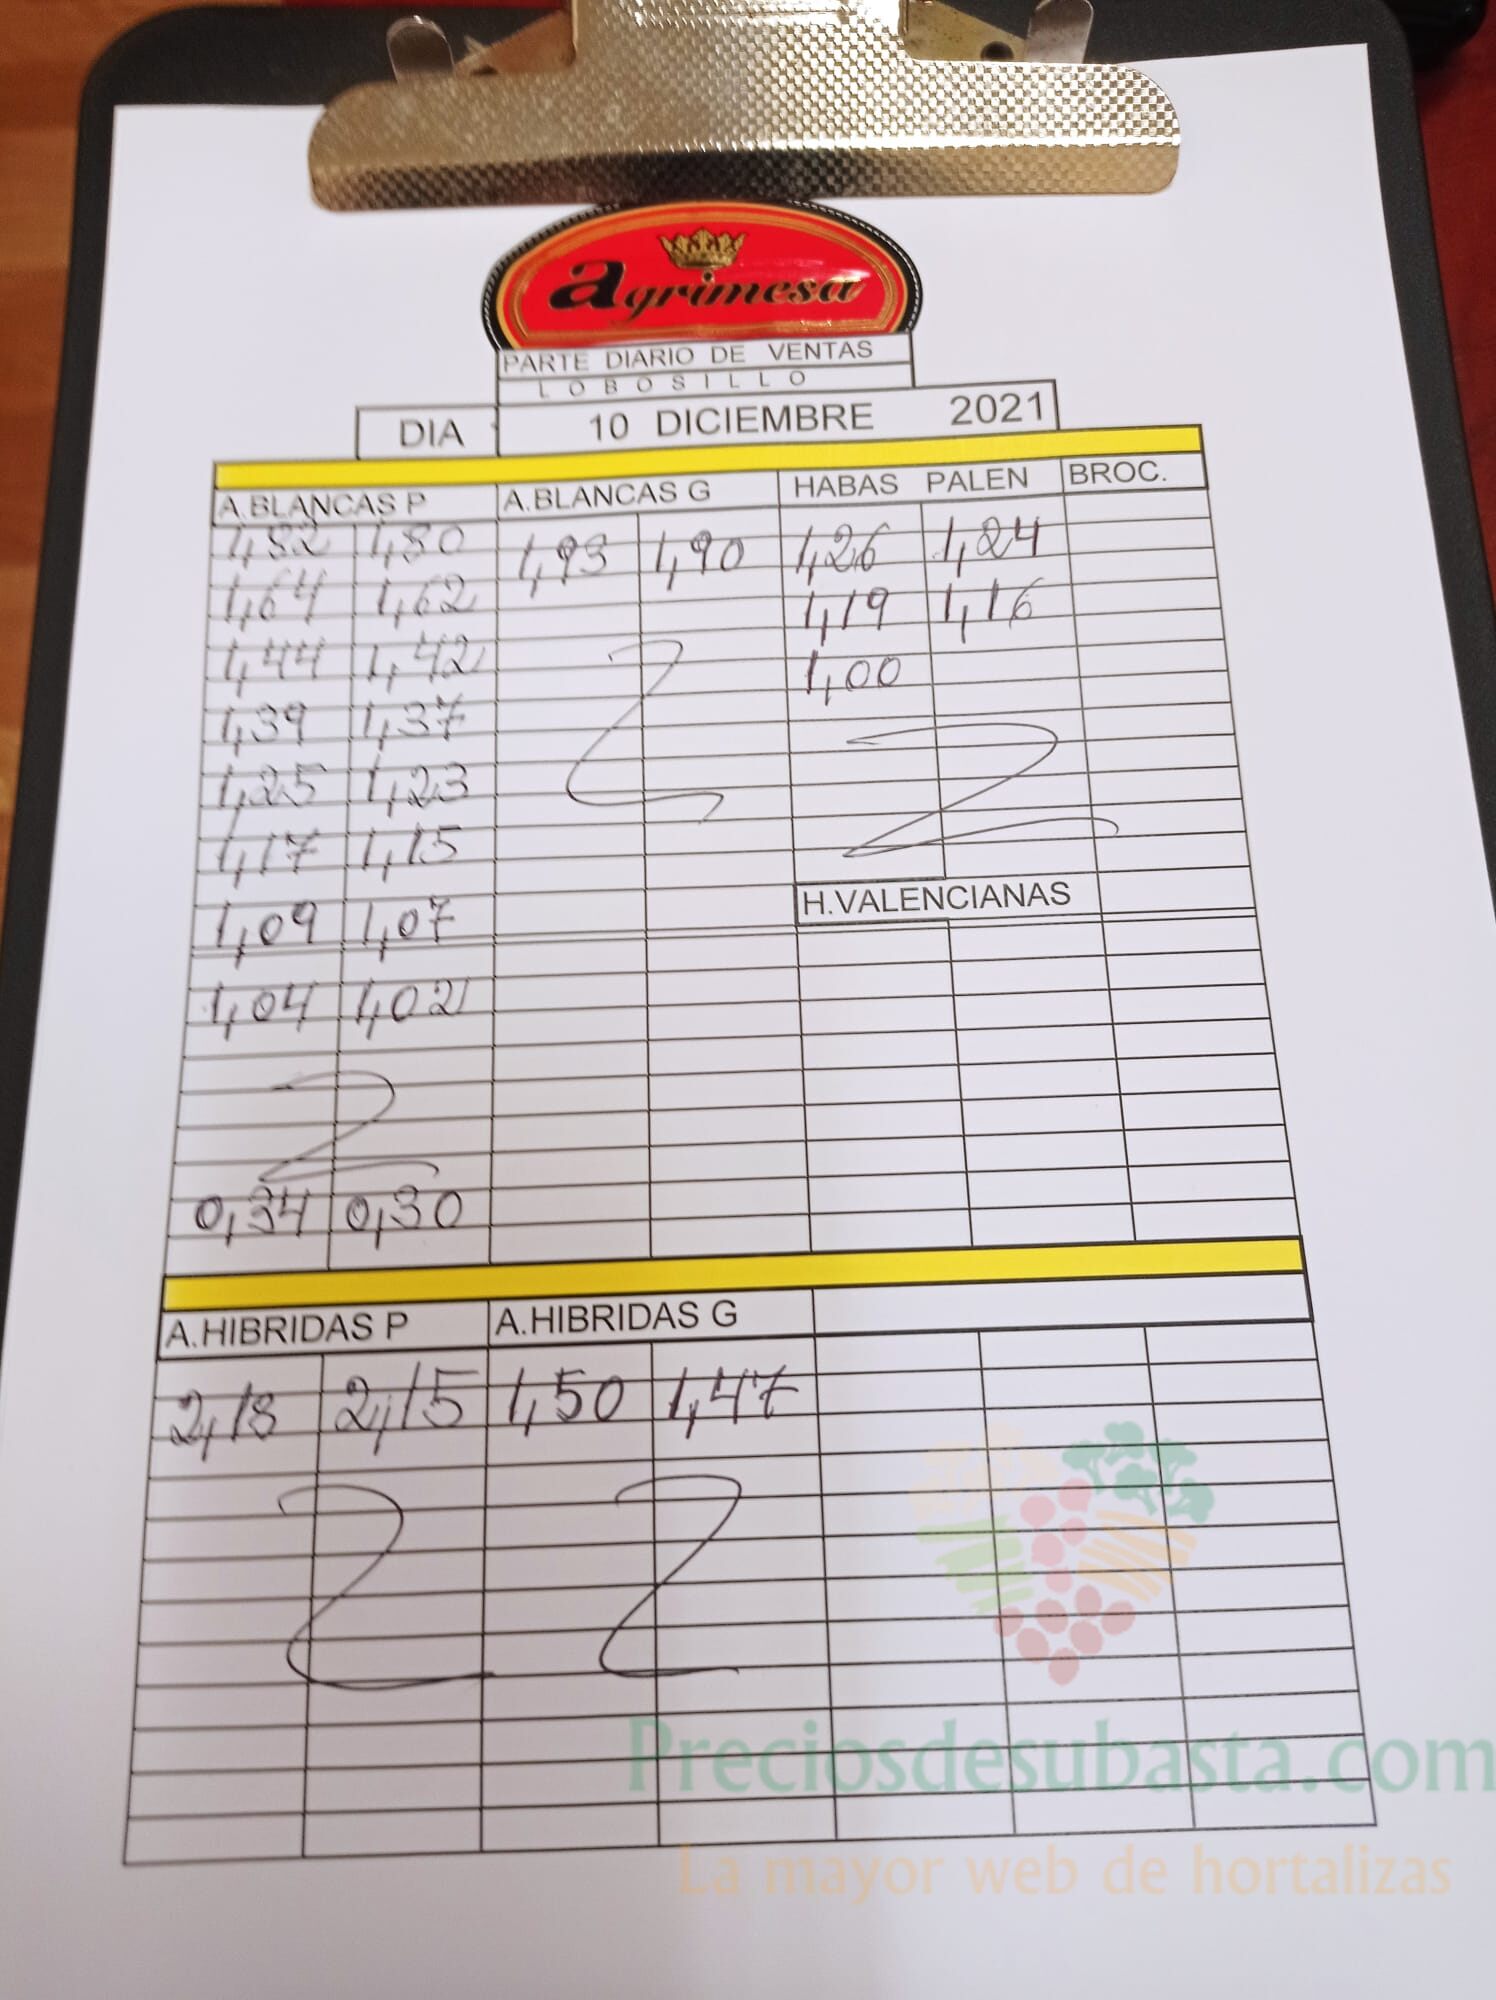 agrimesa
PARTE DIARIO DE VENTAS
LOBOSILLO
DIA 10 DICIEMBRE 2021
A.BLANCAS P A.BLANCAS G HABAS PALEN BROC.
1,82 1,80 1,93 1,90 1,26 1,24
1,64 1,62 1,19 1,16
1,44 1,42 1,00
1,39 1,37
1,25 1,23
1,17 1,15
H.VALENCIANAS
1,09 1,07
1,04 1,02
0,34 0,30
A.HIBRIDAS P A.HIBRIDAS G
2,18 2,15 1,50 1,47
Preciosdesubasta.com
La mayor web de hortalizas